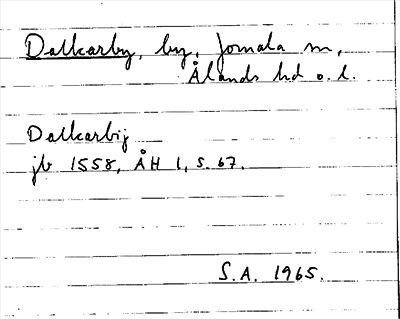 Dalkarby, by, Jomala sn,
Ålands hd o. l.
Dalkarbij
jb 1558, ÅH 1, s. 67.
S.A. 1965.